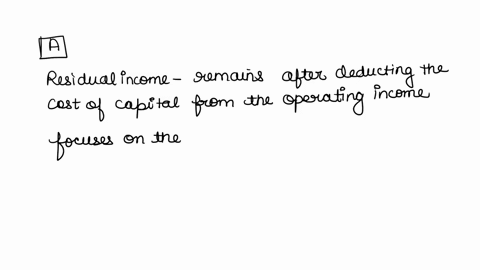 A
Residual income - remains after deducting the
cost of capital from the operating income
focuses on the